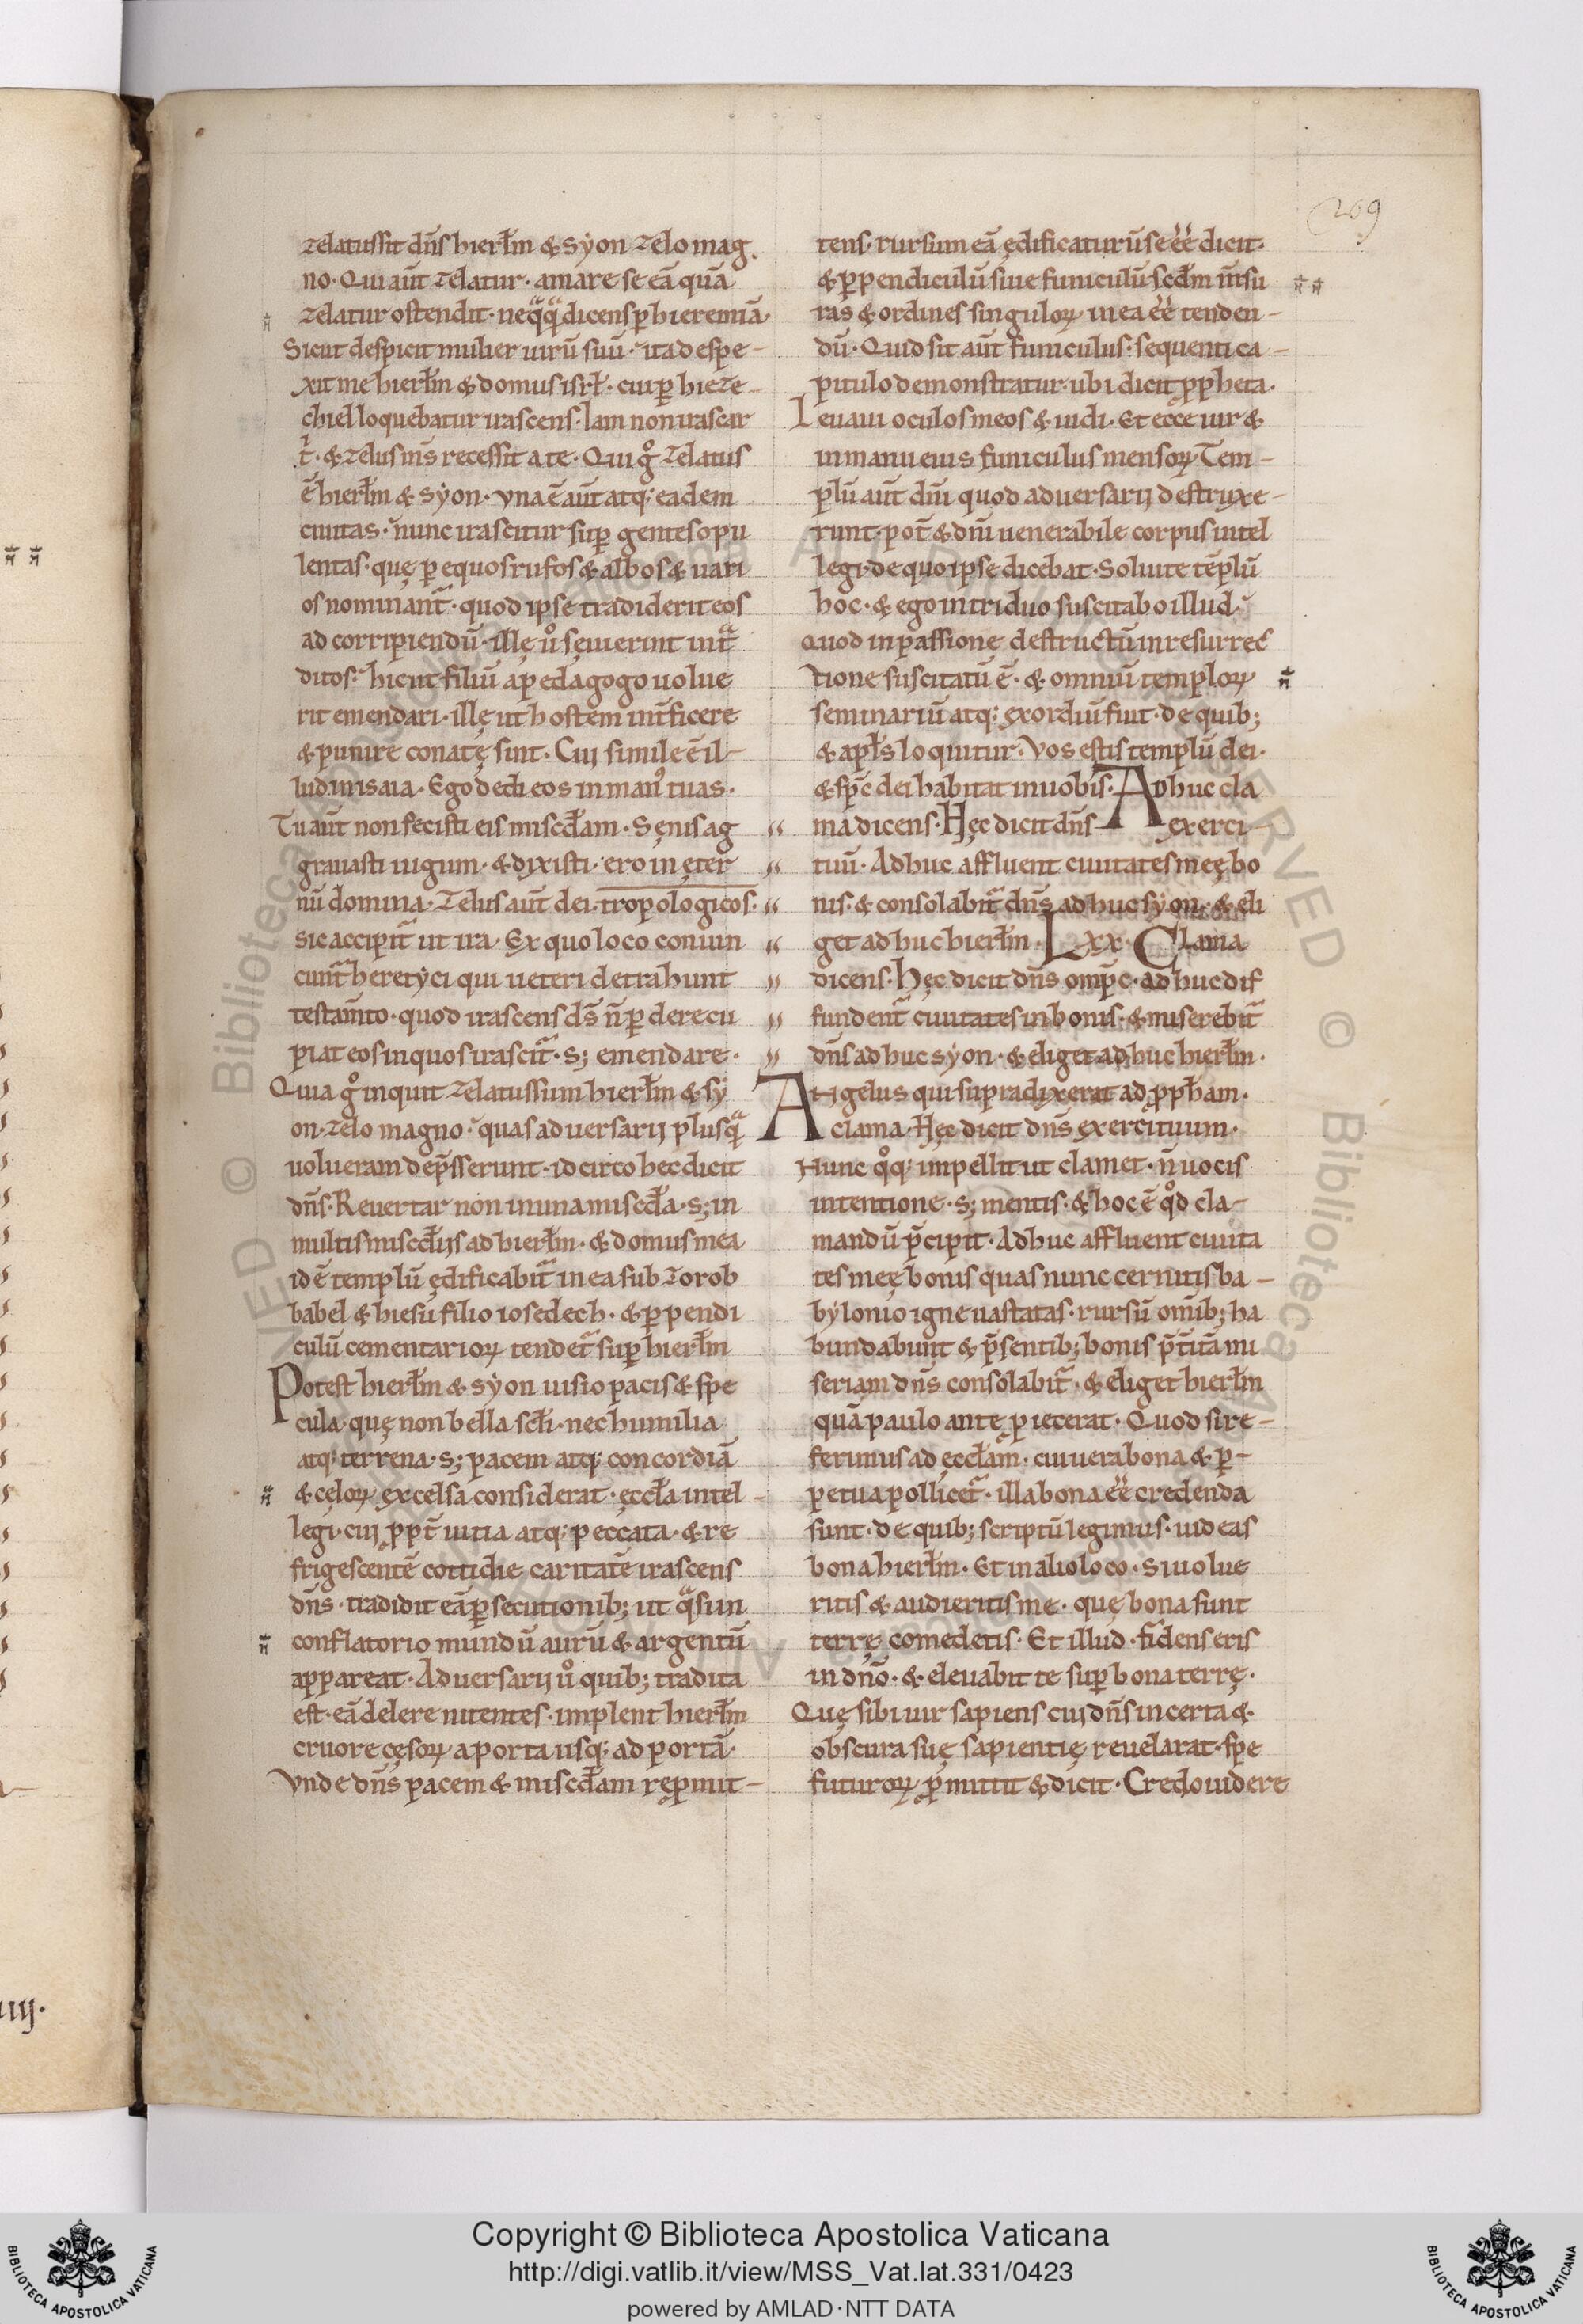 209
zelatus sit dn̄s hierłm & syon zelo mag
no· Qui aut̄ zelatur· amare se eā quā
zelatur ostendit· neqᵃqᵃ dicens ꝑ hieremiā·
Sicut despicit mulier uirū suū· ita despe-
xit me hierłm & domus isrł· cui ꝑ hieze-
chiel loquebatur irascens· Iam non irascar
t· & zelus ms̄ recessit a te· Qui gͦ zelatus
ē hierłm & syon· vna ē aut̄ atq; eadem
ciuitas· nunc irascitur suꝑ gentes opu
lentas· quę ꝑ equos rufos & albos & uari
os nominant᷑· quod ipse tradiderit eos
ad corripiendū· illę uͦ sęuierint int᷑
ditos· hic ut filiū a pedagogo uolue
rit emendari· illę ut hostem int̄ficere
& punire conatę sint· Cui simile ē il-
lud in isaia· Ego dedi eos in man᷒ tuas·
Tu aut̄ non fecisti eis miscđam· Senis ag
grauasti iugum· & dixisti· ero in ęter
nū domina· Zelus aut̄ dei· tropologicos·
sic accipit᷑ ut ira· Ex quo loco conuin
cunt᷑ heretyci qui ueteri detrahunt
testam̄to· quod irascens ds̄ n̄ ꝑdere cu
piat eos in quos irascit᷑· s; emendare·
Quia gͦ inquit zelatus sum hierłm & sy
on· zelo magno· quas aduersarij plusqᵃ
uolueram dep̄sserunt· idcirco hec dicit
dn̄s· Reuertar non in una miscđa· s; in
multis miscđijs ad hierłm· & domus mea
id ē templū ędificabit᷑ in ea sub zorob
babel & hiesu filio iosedech· & ꝑpendi
culū cementarioꝝ tendet᷑ suꝑ hierłm
Potest hierłm & syon uisio pacis & spe
cula· quę non bella scłi· nec humilia
atq; terrena· s; pacem atq; concordiā
& cęloꝝ excelsa considerat· ęccła intel-
legi· cui ꝓpt̄ uitia atq; peccata· & re
frigescentē cottidie caritatē irascens
dn̄s· tradidit eā ꝑsecutionib; ut qᵃsi in
conflatorio mundū aurū & argentū
appareat· Aduersarij uͦ quib; tradita
est· eā delere nitentes· implent hierłm
cruore cęsoꝝ a porta usq; ad portā·
Vnde dn̄s pacem & miscđam reꝓmit-
tens· rursum eā ędificaturū se ēē dicit·
& ꝑpendiculū siue funiculū scđm m̄su
ras & ordines singuloꝝ in ea ēē tenden-
dū· Quid sit aut̄ funiculus· sequenti ca-
pitulo demonstratur· ubi dicit ꝓpheta·
Leuaui oculos meos & uidi· Et ecce uir &
in manu eius funiculus mensoꝝ Tem-
plū aut̄ dn̄i quod aduersarij destruxe-
runt· pot̄ & dn̄i uenerabile corpus intel
legi· de quo ipse dicebat· Soluite tēplū
hoc· & ego in triduo suscitabo illud·
Quod in passione destructū in resurrec
tione suscitatū ē· & omniū temploꝝ
seminariū atq; exordiū fuit· de quib;
& apłs loquitur· Vos estis templū dei·
& sp̄c dei habitat in uobis· Adhuc cla
ma dicens· Hęc dicit dn̄s exerci-
tuū· Adhuc affluent ciuitates meę bo
nis· & consolabit᷑ dn̄s adhuc syon· & eli
get adhuc hierłm· Lxx· Clama
dicens· Hęc dicit dn̄s omp̄c· adhuc dif
fundent᷑ ciuitates in bonis· & miserebit᷑
dn̄s adhuc syon· & eliget adhuc hierłm·
Angelus qui supra dixerat ad ꝓpham·
clama· Hęc dicit dn̄s exercituum·
Nunc qͦq; impellit ut clamet· n̄ uocis
intentione· s; mentis· & hoc ē qͦd cla-
mandū p̄cipit· Adhuc affluent ciuita
tes meę bonis quas nunc cernitis ba-
bylonio igne uastatas· rursū om̄ib; ha
bundabunt & p̄sentib; bonis p̄t̄itā mi
seriam dn̄s consolabit᷑· & eliget hierłm
quā paulo ante ꝓiecerat· Quod si re-
ferimus ad ęccłam· cui uera bona & ꝑ-
petua pollicet᷑· illa bona ēē credenda
sunt· de quib; scriptū legimus· uideas
bona hierłm· Et in alio loco· Si uolue
ritis & audieritis me· quę bona sunt
terrę comedetis· Et illud· fidens eris
in dn̄o· & eleuabit te suꝑ bona terrę·
Quę sibi uir sapiens cui dn̄s incerta &
obscura suę sapientię reuelarat· spe
futuroꝝ ꝓmittit & dicit· Credo uidere
iiij·
Copyright © Biblioteca Apostolica Vaticana
http://digi.vatlib.it/view/MSS_Vat.lat.331/0423
powered by AMLAD·NTT DATA
BIBLIOTECA APOSTOLICA VATICANA
BIBLIOTECA APOSTOLICA VATICANA